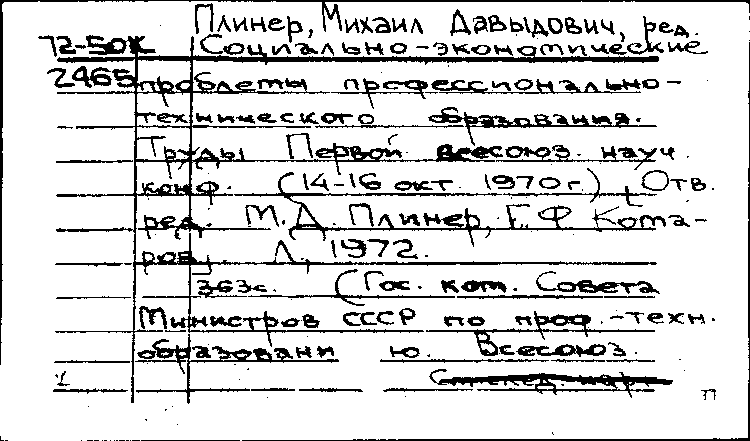 Плинер, Михаил Давыдович, ред.
72-50К Социально-экономические
2465 проблемы профессионально-
технического образования.
Труды Первой всесоюз. науч.
конф. (14-16 окт. 1970 г.), Отв.
ред. М.Д. Плинер, Г.Ф Кома-
ров. Л., 1972.
363с. (Гос. ком. Совета
Министров СССР по проф.-техн.
образовани ю. Всесоюз.
1
77